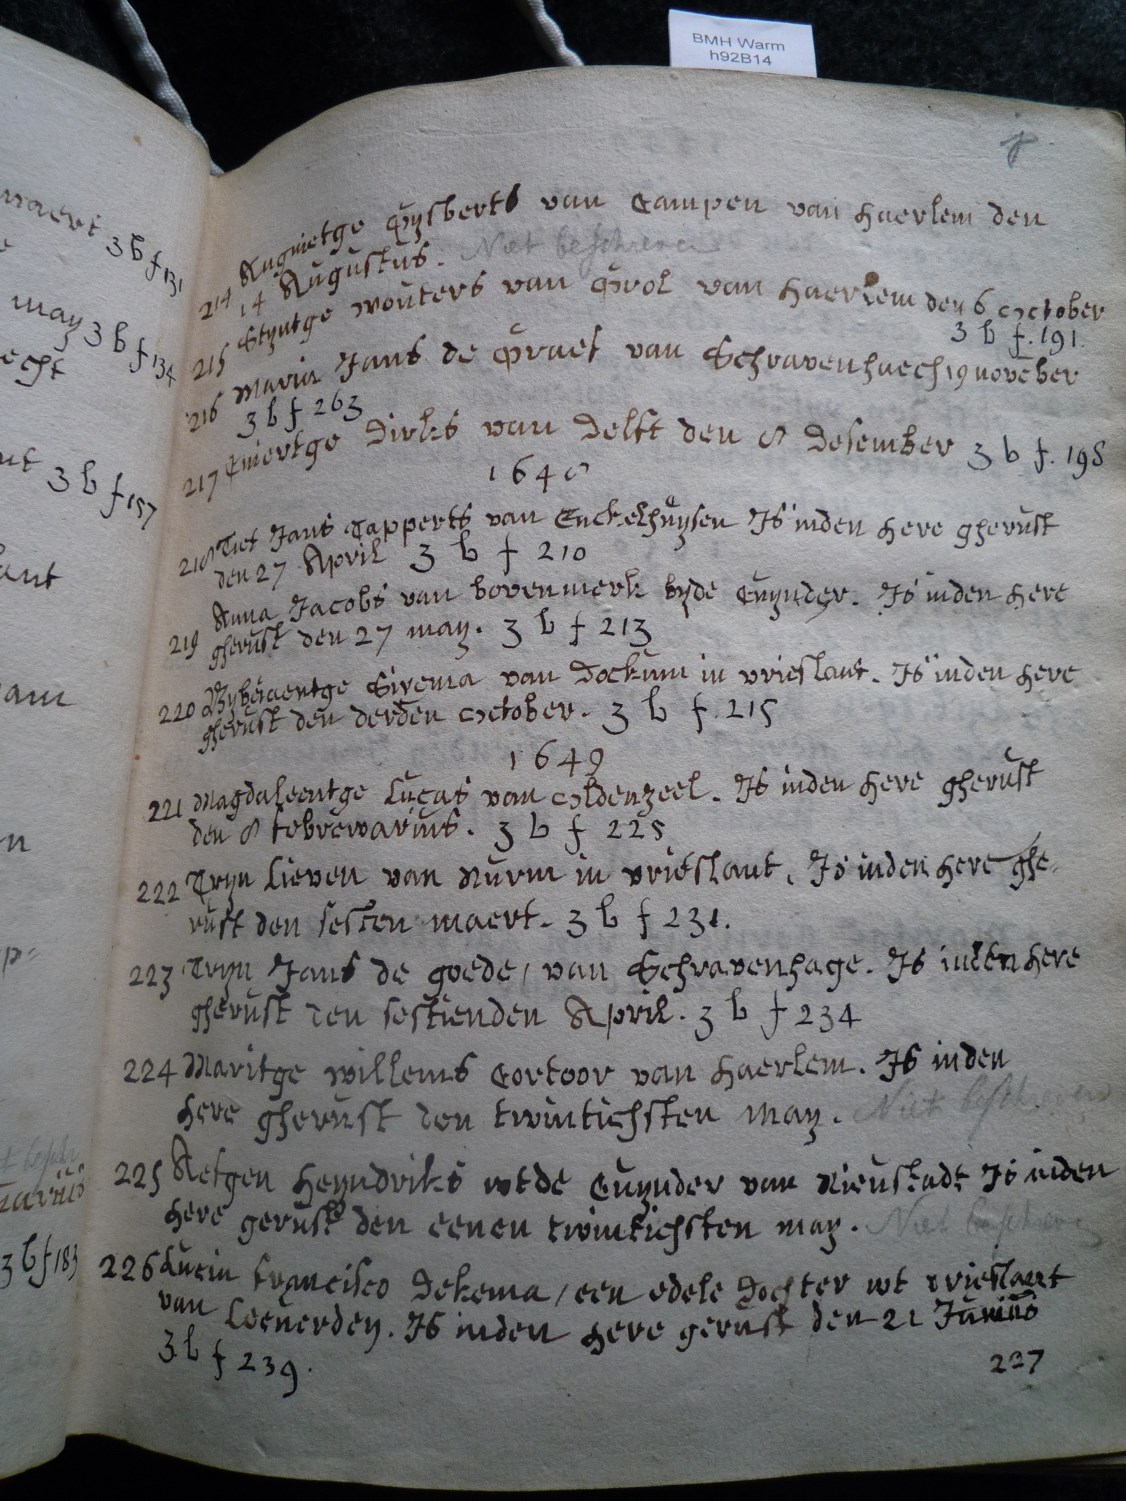 BMH Warm
h92B14
8
214 Angnietge Gysberts van Campen van haerlem den
14 Augustus. Niet beschreven
215 Styntge wouters van Grol van Haerlem den 6 october
3 b f. 191.
216 Maria Jans de Graef van Schravenhaech 19 november
3 b f 263
217 Eniertge Dirks van Delft den 8 desember 3 b f. 198
1648
218 Tiet Jans Tapperts van Enckelhuysen Is inden here gherust
den 27 April 3 b f 210
219 Anna Jacobs van bovenmerk byde Cuynder. Is inden here
gherust den 27 may. 3 b f 213
220 Sirema van Dockum in vrieslant. Is inden here
gherust den derden october. 3 b f. 215
1649
221 Magdaleentge Lucas van oldenzeel. Is inden here gherust
den 8 febrewarius. 3 b f 225
222 Tryn Lieven van Wurm in vrieslant. Is inden here ghe-
rust den sesten maert. 3 b f 231.
223 Tryn Jans de goede / van Schravenhage. Is inden here
gherust den sestienden April. 3 b f 234
224 Maritge willems Cortoor van haerlem. Is inden
here gherust den twintichsten may. Niet beschreven
225 Aefgen heyndriks wtde Cuynder van Nieustadt Is inden
here gerust den eenen twintichsten may. Niet beschreven
226 Lucia francisco Dekema / een edele dochter wt vrieslant
van Leeuerden. Is inden here gerust den 21 Junius
3 b f 239.
227
waert 3 b f 131
may 3 b f 134
echt
3 b f 157
lant
am
n
p=
3 b f 183